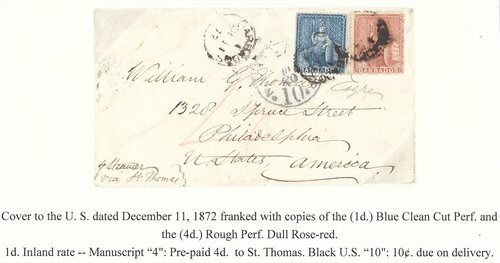 BARBADOS
BARBADOS
10
William G. Thomas Esqre
1328 Spruce Street
Philadelphia
U. States, America
pr Steamer
via St Thomas
Cover to the U. S. dated December 11, 1872 franked with copies of the (1d.) Blue Clean Cut Perf. and
the (4d.) Rough Perf. Dull Rose-red.
1d. Inland rate -- Manuscript “4”: Pre-paid 4d. to St. Thomas. Black U.S. “10”: 10¢. due on delivery.